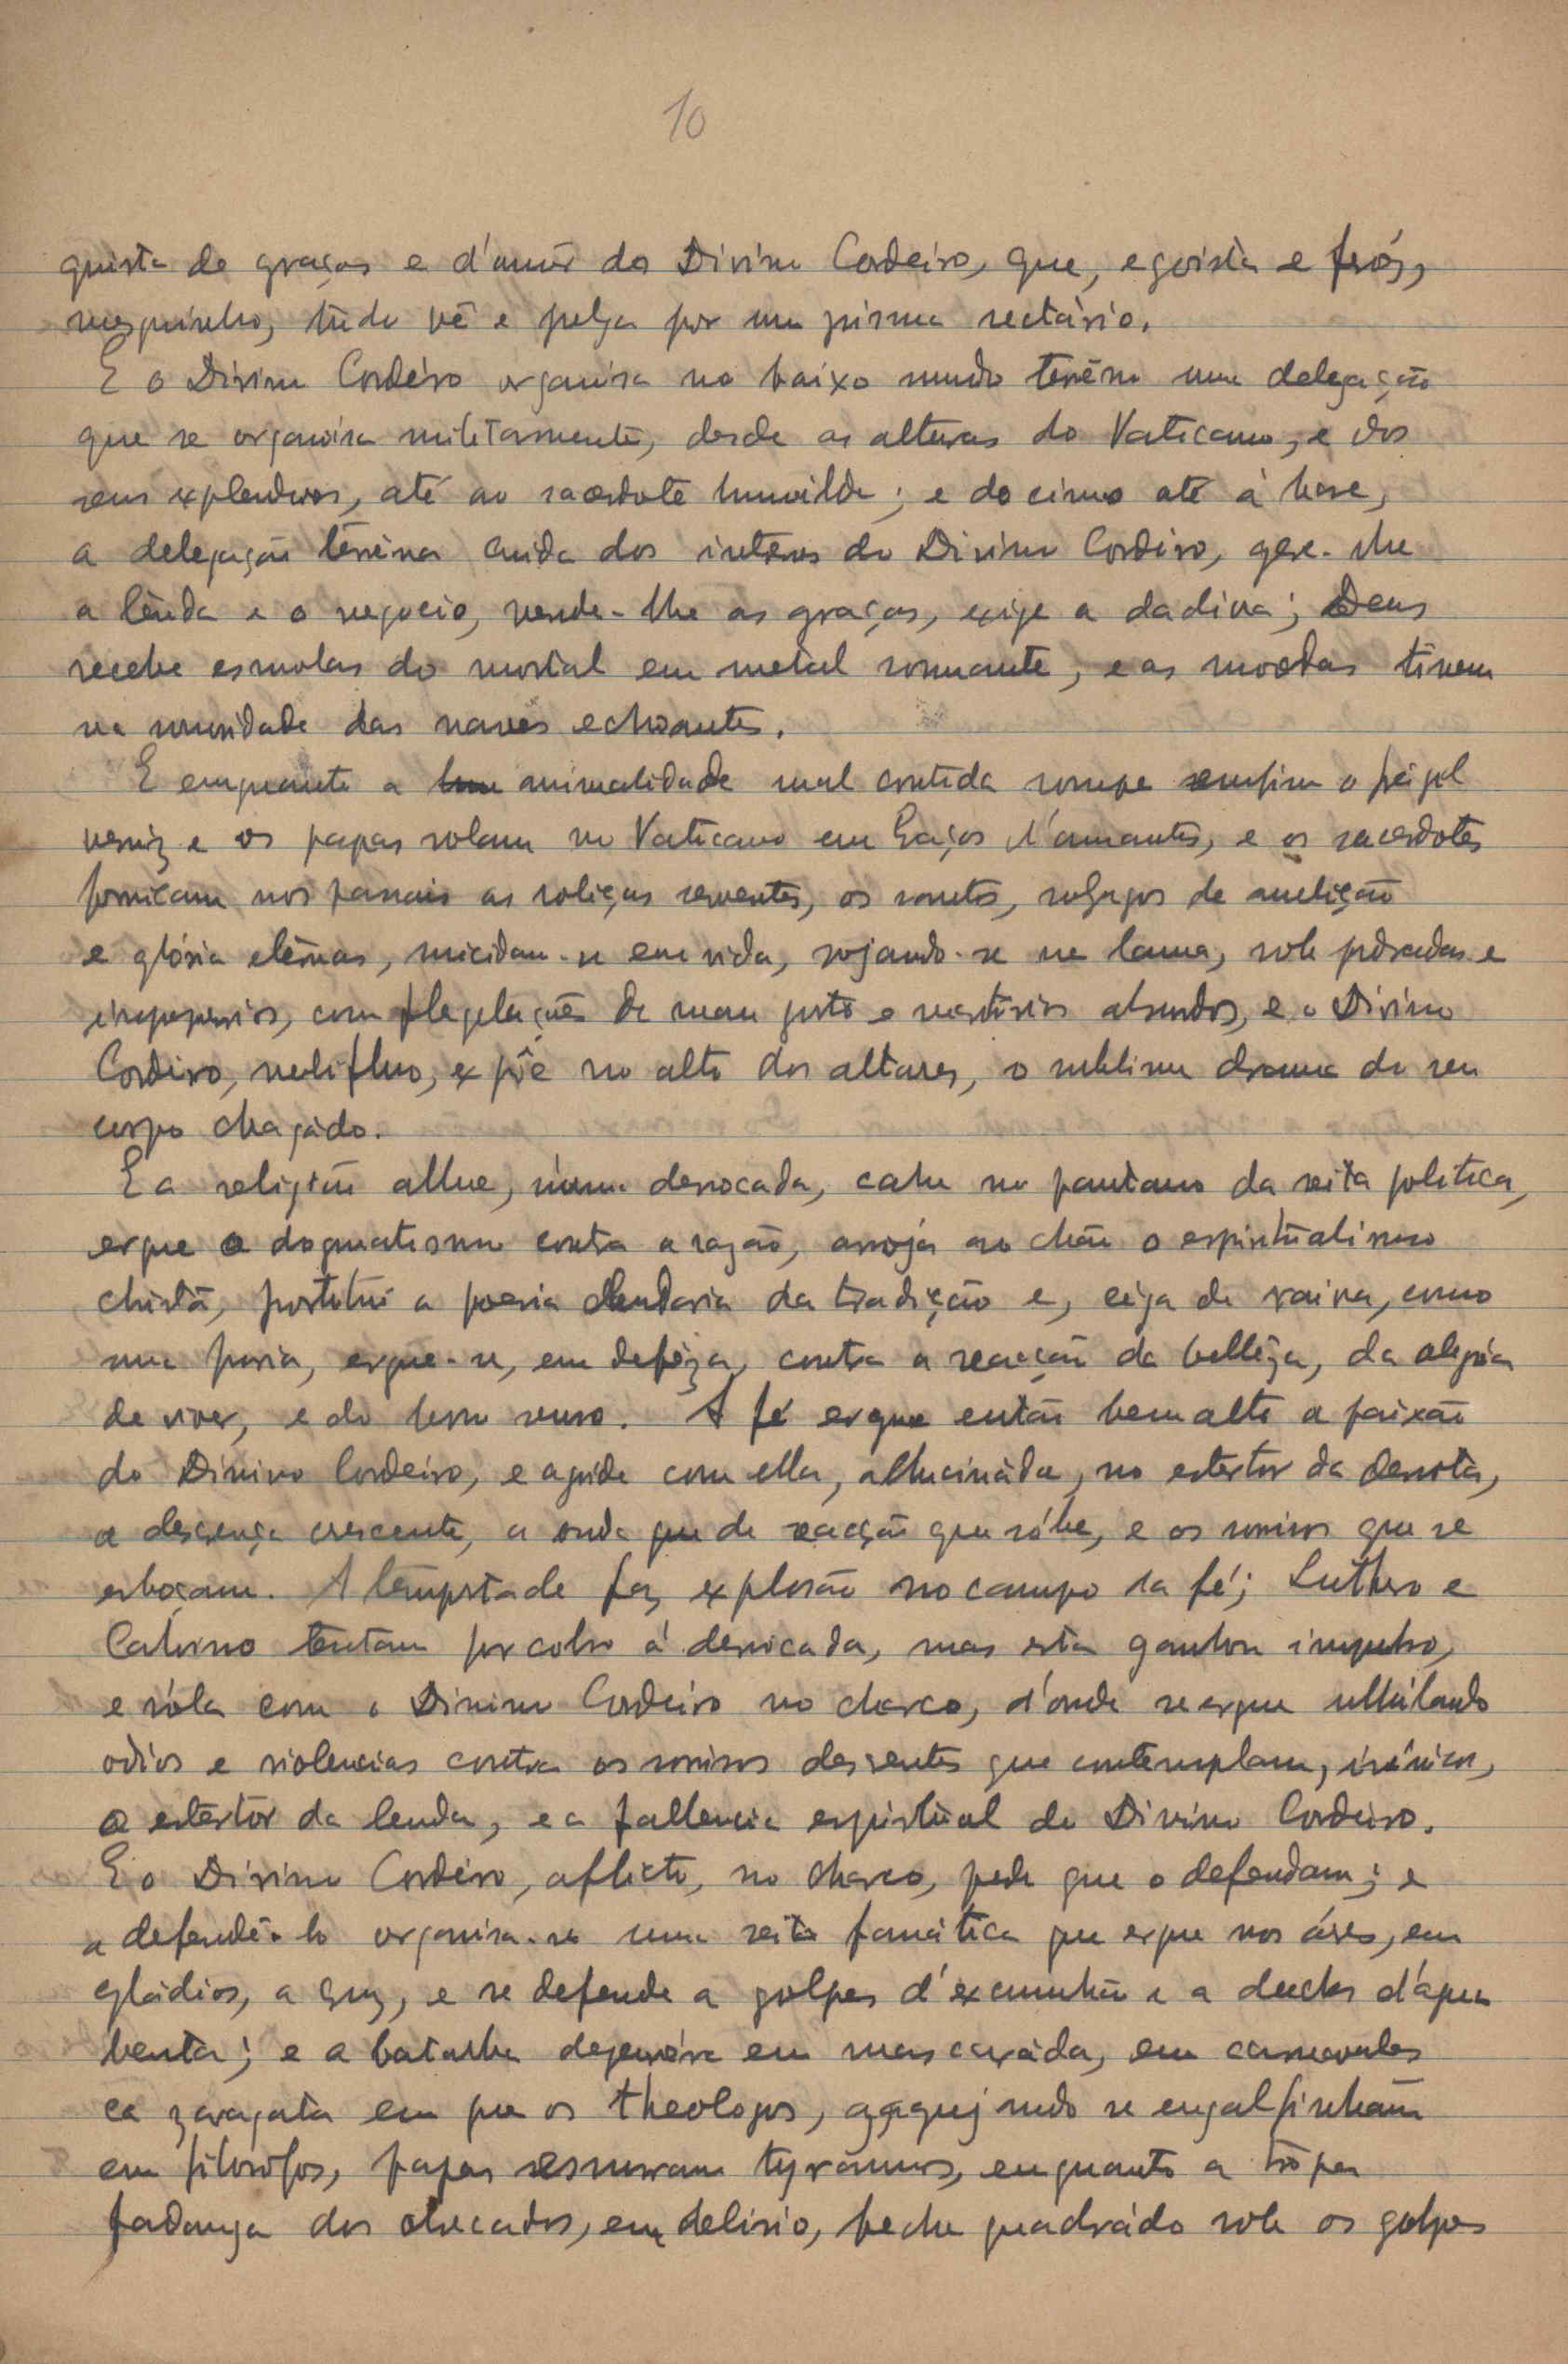 10
quista de graças e d'amôr do Divino Cordeiro, que, egoista e feróz,
mesquinho, tudo vê e julga por um prisma sectário.
E o Divino Cordeiro organisa no baixo mundo terrêno uma delegação
que se organisa militarmente, desde as alturas do Vaticano, e dos
seus explendores, até ao sacerdote humilde; e do cimo até á base,
a delegação terrêna cuida dos interes do Divino Cordeiro, gere-lhe
a lenda e o negocio, vende-lhe as graças, exige a dadiva; Deus
recebe esmolas do mortal em metal sonnante, e as moedas tinem
na sonoridade das naves echoantes.
E emquanto a animalidade mal contida rompe emfim o frágil
verniz e os papas rolam no Vaticano em braços d'amantes, e os sacerdotes
fornicam nos passais as roliças serventes, os santos, sofregos de ambição
e glória etêrnas, suicidam-se em vida, rojando-se na lama, sob pedradas e
improperios, com flagelações de mau gosto e martirios absurdos, e o Divino
Cordeiro, melifluo, expõe no alto dos altares, o sublime drama do seu
corpo chagádo.
E a religião allue, n'uma derrocada, cahe no pantano da seita politica,
ergue o dogmatismo contra a razão, arroja ao chão o espiritualismo
christã, prostitui a poesia lendaria da tradição e, cega de raiva, como
uma furia, ergue-se, em defêza, contra a reacção da bellêza, da alegria
de viver, e do bom senso. A fé ergue então bem alto a paixão
do Divino Cordeiro, e agride com ella, allucináda, no estertor da derrota,
a descrença crescente, a onda que de reacção que sóbe, e os sorrisos que se
esboçam. A tempstade faz explosão no campo da fé; Luthero e
Calvino tentam por cobro á derrocada, mas esta ganhou impulso,
e róla com o Divino Cordeiro no charco, d'onde se ergue ullulando
odios e violencias contra os sorrisos descrentes que contemplam, irónicos,
o estertor da lenda, e a fallencia espiritual do Divino Cordeiro.
E o Divino Cordeiro, aflicto, no charco, pede que o defendam; e
a defendê-lo organisa-se uma seita fanática que ergue nos áres, em
gládios, a cruz, e se defende a golpes d'excumunhão e a duches d'agua
benta; e a batalha degenéra em mascaráda, em carnavales
ca zaragata em que os theologos, gaguejando se engalfinham
em filosófos, papas esmurram tyrannos, emquanto a trôpega
fadanga dos obcecados, em delirio, fecha quadrádo sob os golpes